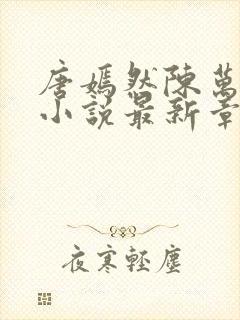 唐嫣然陳萬
小說最新章
夜寒輕塵